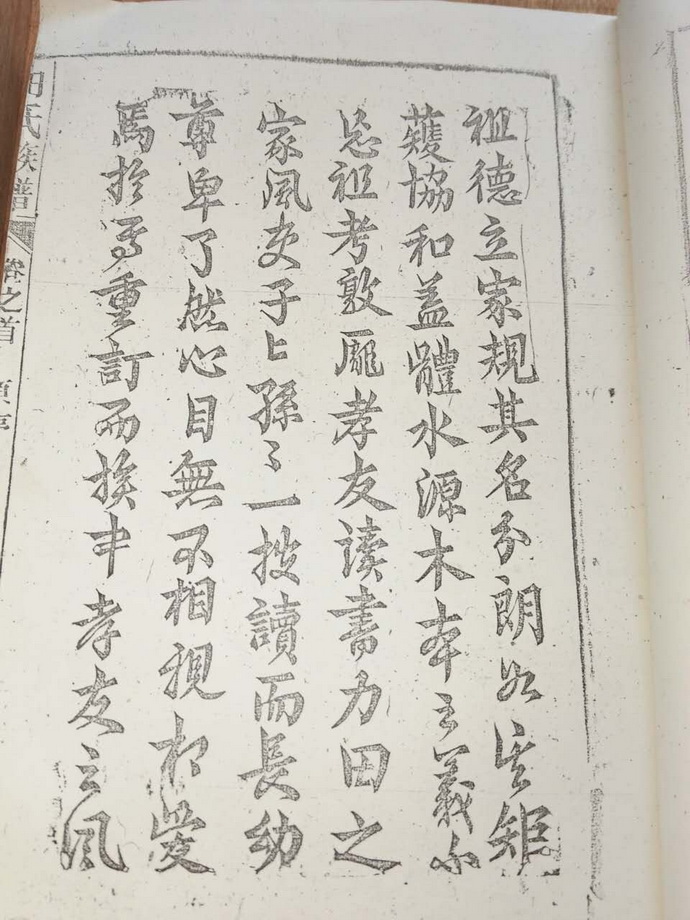 祖德立家規其名分朗如定矩
蒦協和蓋體水源木本之義不
忘祖考敦龐孝友读書力田之
家風吏子〻孫〻一披讀而長幼
尊卑了然心目無不相親相愛
焉於焉重訂而族中孝友之風
氏族譜
卷之首